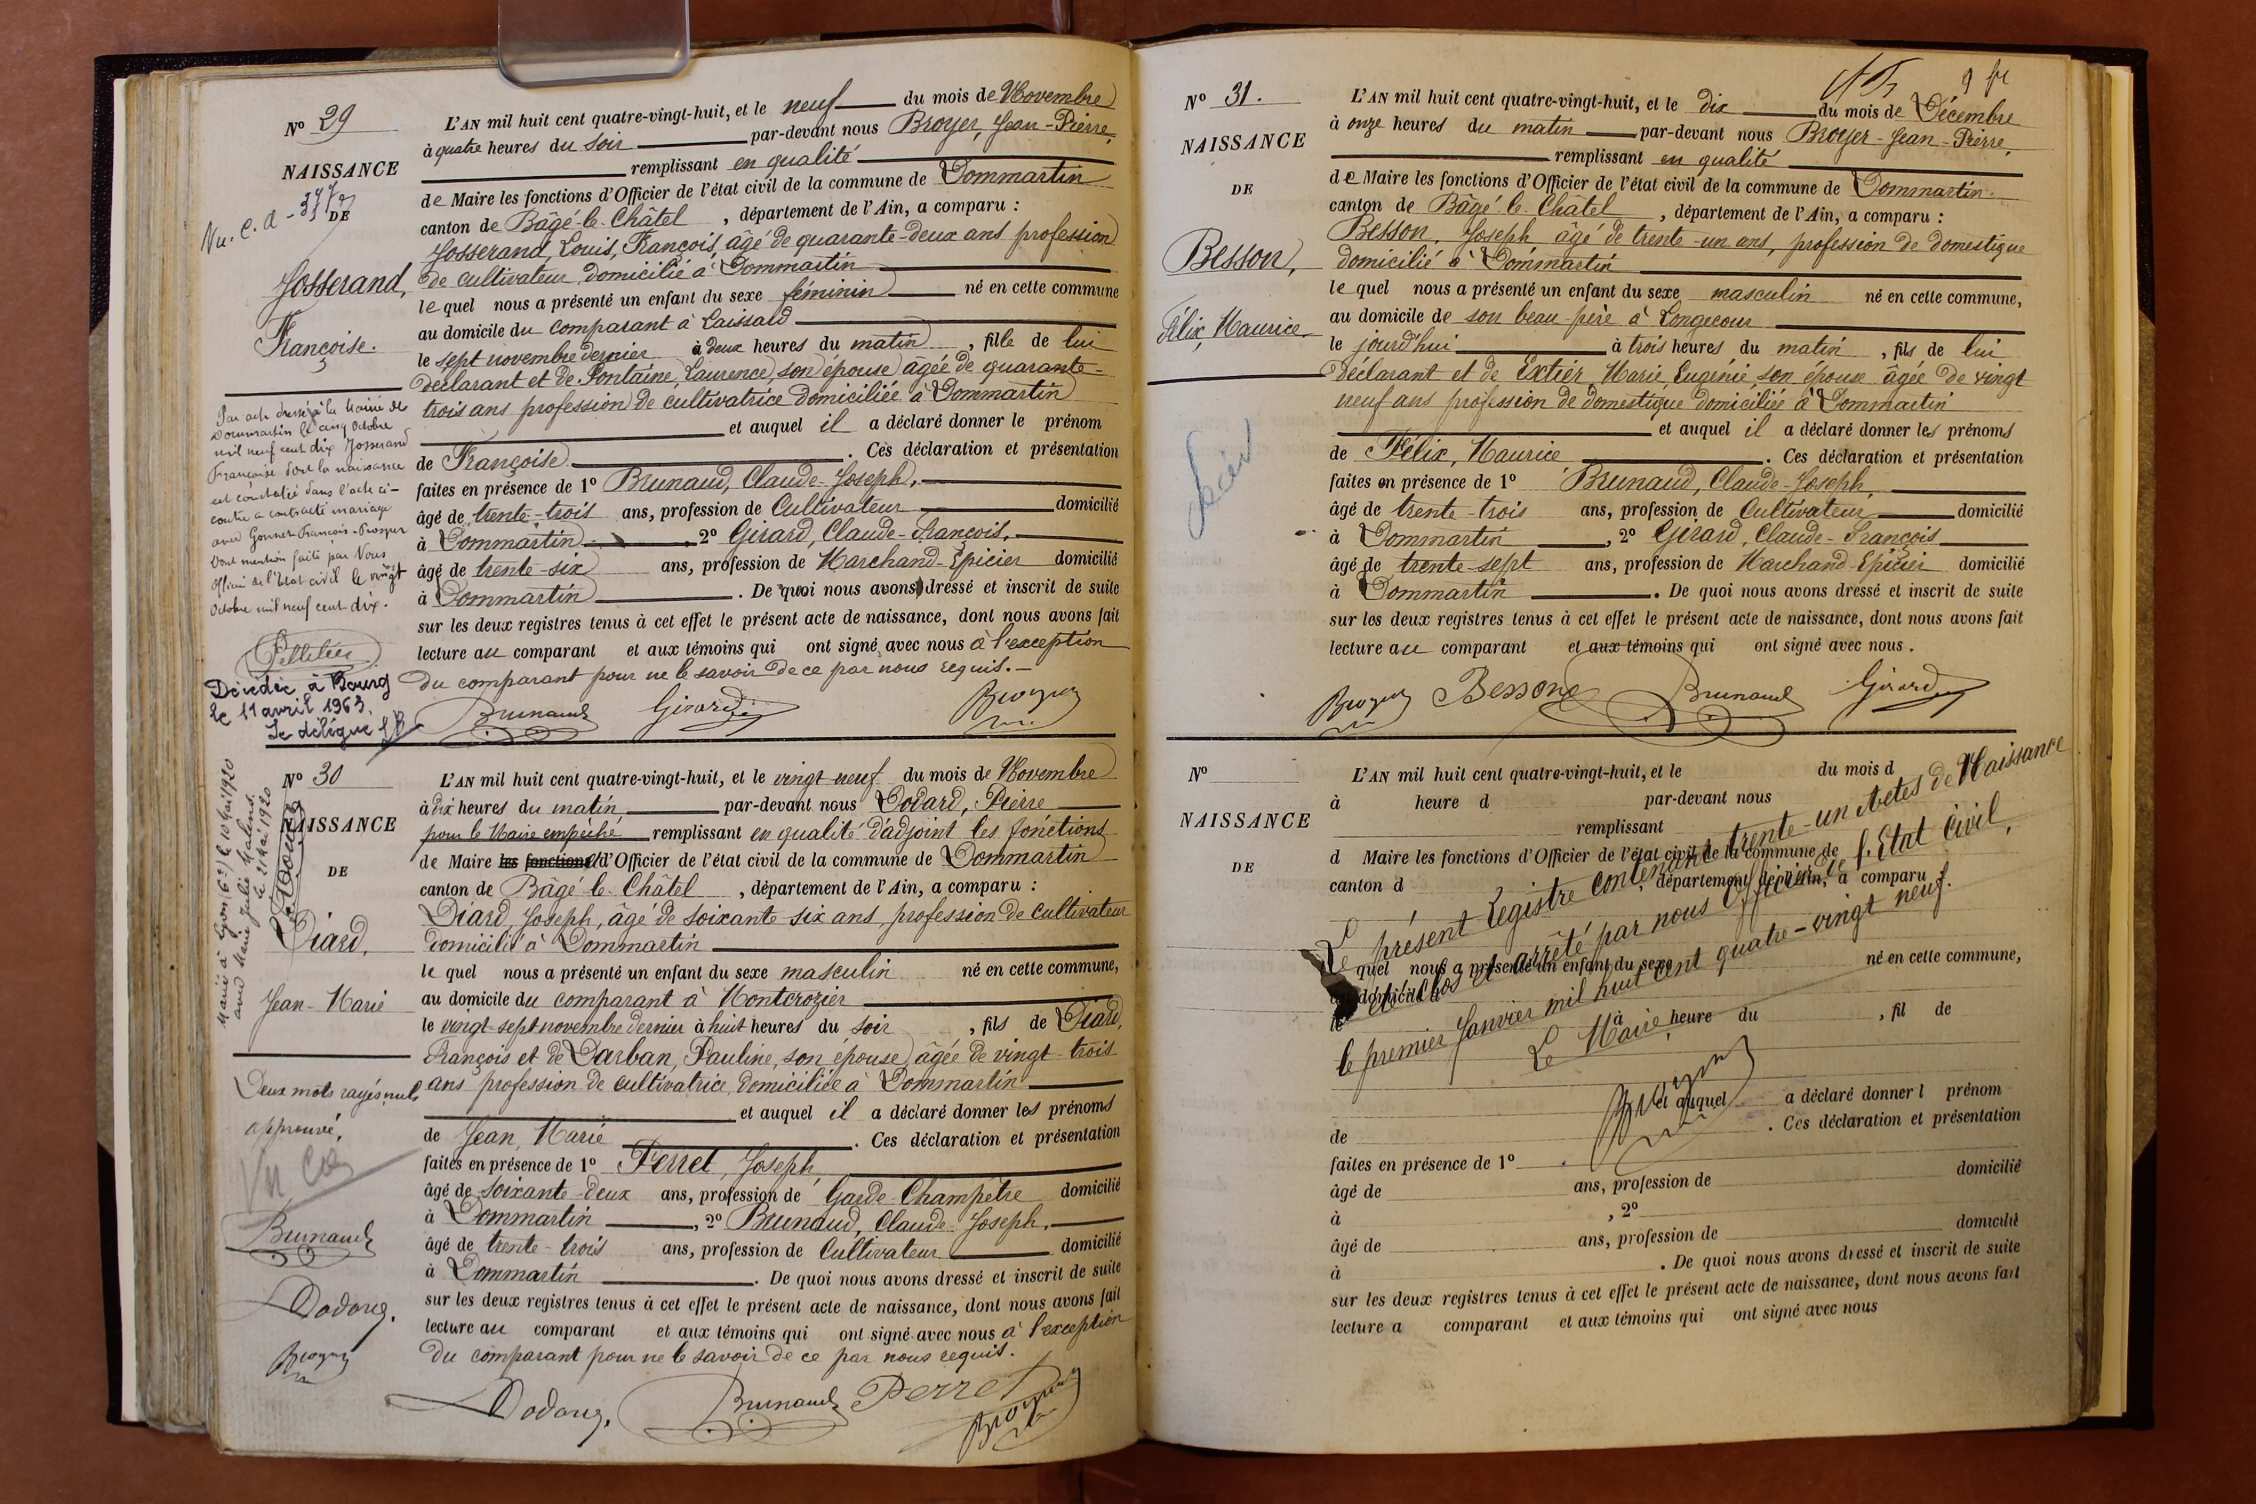 Nº 29
NAISSANCE
DE
Josserand,
Françoise.
L'AN mil huit cent quatre-vingt-huit, et le neuf du mois de Novembre
à quatre heures du soir par-devant nous Broyer, Jean-Pierre,
remplissant en qualité
de Maire les fonctions d'Officier de l'état civil de la commune de Dommartin
canton de Bâgé-le-Châtel, département de l'Ain, a comparu :
Josserand, Louis, François, âgé de quarante-deux ans profession
de cultivateur domicilié à Dommartin
le quel nous a présenté un enfant du sexe féminin né en cette commune
au domicile du comparant à Laissard
le sept novembre dernier à deux heures du matin, fille de lui
déclarant et de Fontaine, Laurence, son épouse âgée de quarante-
trois ans profession de cultivatrice domiciliée à Dommartin
et auquel il a déclaré donner le prénom
de Françoise. Ces déclaration et présentation
faites en présence de 1º Brunaud, Claude-Joseph,
âgé de trente-trois ans, profession de Cultivateur domicilié
à Dommartin, 2º Girard, Claude-François,
âgé de trente-six ans, profession de Marchand-Epicier domicilié
à Dommartin. De quoi nous avons dressé et inscrit de suite
sur les deux registres tenus à cet effet le présent acte de naissance, dont nous avons fait
lecture au comparant et aux témoins qui ont signé avec nous à l'exception
du comparant pour ne le savoir de ce par nous requis.
Brunaud Girard Broyer
Par acte dressé à la Mairie de
Dommartin le cinq Octobre
mil neuf cent dix Josserand
Françoise dont la naissance
est constatée dans l'acte ci-
contre a contracté mariage
avec Gonnet François-Prosper
Dont mention faite par Nous
Officier de l'Etat civil le vingt
Octobre mil neuf cent dix.
Pelletier
Décédée à Bourg
le 11 avril 1963.
Le délégué
Nº 30
NAISSANCE
DE
Diard,
Jean-Marie
Marié à Lyon (6e) le 10 Mai 1920
avec Marie Julie
le 21 Mai 1920
L'AN mil huit cent quatre-vingt-huit, et le vingt neuf du mois de Novembre
à dix heures du matin par-devant nous Dodard, Pierre
pour le Maire empêché remplissant en qualité d'adjoint les fonctions
de Maire les fonctions d'Officier de l'état civil de la commune de Dommartin
canton de Bâgé-le-Châtel, département de l'Ain, a comparu :
Diard, Joseph, âgé de soixante-six ans, profession de cultivateur
domicilié à Dommartin
le quel nous a présenté un enfant du sexe masculin né en cette commune,
au domicile du comparant à Montcrozier
le vingt-sept novembre dernier à huit heures du soir, fils de Diard,
François et de Darban, Pauline, son épouse âgée de vingt-trois
ans profession de cultivatrice domiciliée à Dommartin
et auquel il a déclaré donner les prénoms
de Jean Marie. Ces déclaration et présentation
faites en présence de 1º Ferret, Joseph,
âgé de soixante-deux ans, profession de Garde-Champêtre domicilié
à Dommartin, 2º Brunaud, Claude-Joseph,
âgé de trente-trois ans, profession de Cultivateur domicilié
à Dommartin. De quoi nous avons dressé et inscrit de suite
sur les deux registres tenus à cet effet le présent acte de naissance, dont nous avons fait
lecture au comparant et aux témoins qui ont signé avec nous à l'exception
du comparant pour ne le savoir de ce par nous requis.
Brunaud Perret
Broyer
Deux mots rayés nuls
approuvé.
Brunaud
Broyer
Nº 31.
NAISSANCE
DE
Besson,
Félix, Maurice
L'AN mil huit cent quatre-vingt-huit, et le dix du mois de Décembre
à onze heures du matin par-devant nous Broyer-Jean-Pierre,
remplissant en qualité
de Maire les fonctions d'Officier de l'état civil de la commune de Dommartin
canton de Bâgé-le-Châtel, département de l'Ain, a comparu :
Besson, Joseph âgé de trente-un ans, profession de domestique
domicilié à Dommartin
le quel nous a présenté un enfant du sexe masculin né en cette commune,
au domicile de son beau-père à Longecour
le jourd'hui à trois heures du matin, fils de lui
déclarant et de Extier Marie, Eugénie, son épouse âgée de vingt
neuf ans profession de domestique domiciliée à Dommartin
et auquel il a déclaré donner les prénoms
de Félix, Maurice. Ces déclaration et présentation
faites en présence de 1º Brunaud, Claude-Joseph,
âgé de trente-trois ans, profession de Cultivateur domicilié
à Dommartin, 2º Girard, Claude-François
âgé de trente-sept ans, profession de Marchand-Epicier domicilié
à Dommartin. De quoi nous avons dressé et inscrit de suite
sur les deux registres tenus à cet effet le présent acte de naissance, dont nous avons fait
lecture au comparant et aux témoins qui ont signé avec nous.
Broyer Besson Brunaud Girard
Nº
NAISSANCE
DE
L'AN mil huit cent quatre-vingt-huit, et le du mois d
à heure d par-devant nous
remplissant
d Maire les fonctions d'Officier de l'état civil de la commune de
canton d, département de l'Ain, a comparu :
Le présent Registre contenant trente-un Actes de Naissance
a été clos et arrêté par nous Officier de l'Etat civil,
le premier Janvier mil huit cent quatre-vingt neuf.
Le Maire,
Broyer
quel nous a présenté un enfant du sexe né en cette commune,
au domicile d
le à heure du, fil de
et auquel a déclaré donner l prénom
de. Ces déclaration et présentation
faites en présence de 1º
âgé de ans, profession de domicilié
à, 2º
âgé de ans, profession de domicilié
à. De quoi nous avons dressé et inscrit de suite
sur les deux registres tenus à cet effet le présent acte de naissance, dont nous avons fait
lecture a comparant et aux témoins qui ont signé avec nous